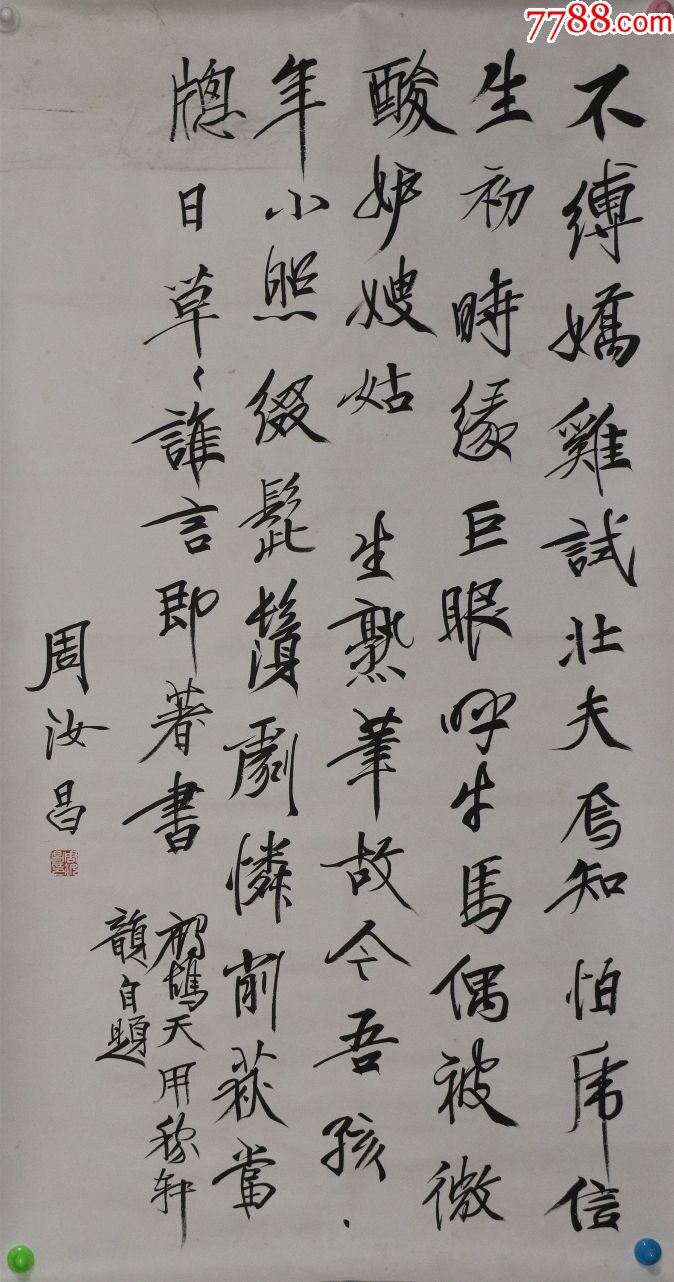 7788.com
不縛嬌雞試壯夫焉知怕虎信
生初時緣巨眼呼牛馬偶被微
酸妒嫂姑 生熟筆故今吾孩、
年小照綴髭鬚劇憐削荻當
牕日草〻誰言即著書
鷓鴣天用稼軒
韻自題
周汝昌